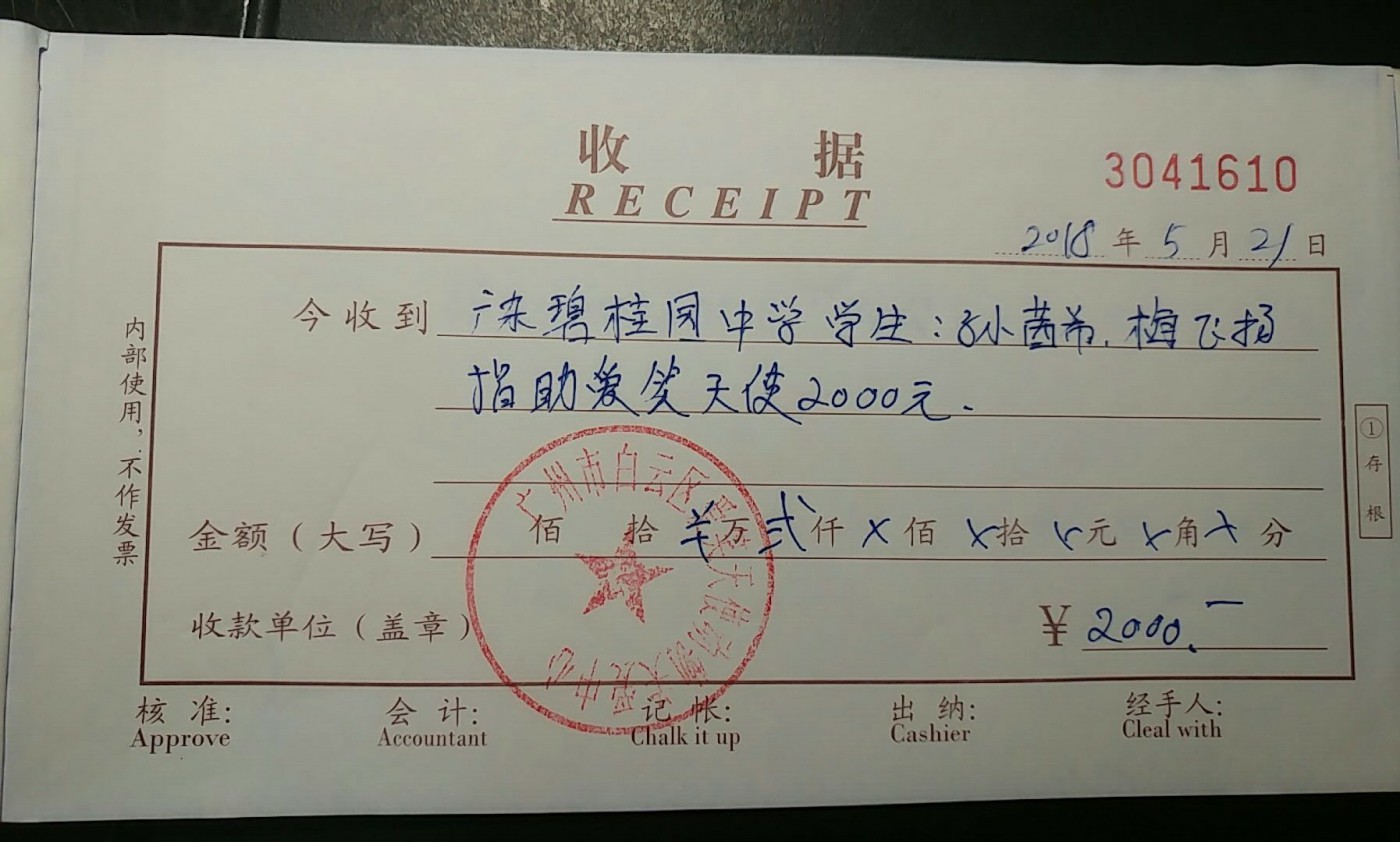 收据
RECEIPT
3041610
2018年5月21日
今收到 广东碧桂园中学学生:孙茜希.梅飞扬
捐助爱笑天使2000元.
内部使用,不作发票
①存根
金额(大写) 佰 拾 ¥万 贰仟 X佰 X拾 X元 X角 X分
收款单位(盖章) ¥ 2000.一
广州市白云区 天使 中心
核准: 会计: 记帐: 出纳: 经手人:
Approve Accountant Chalk it up Cashier Cleal with